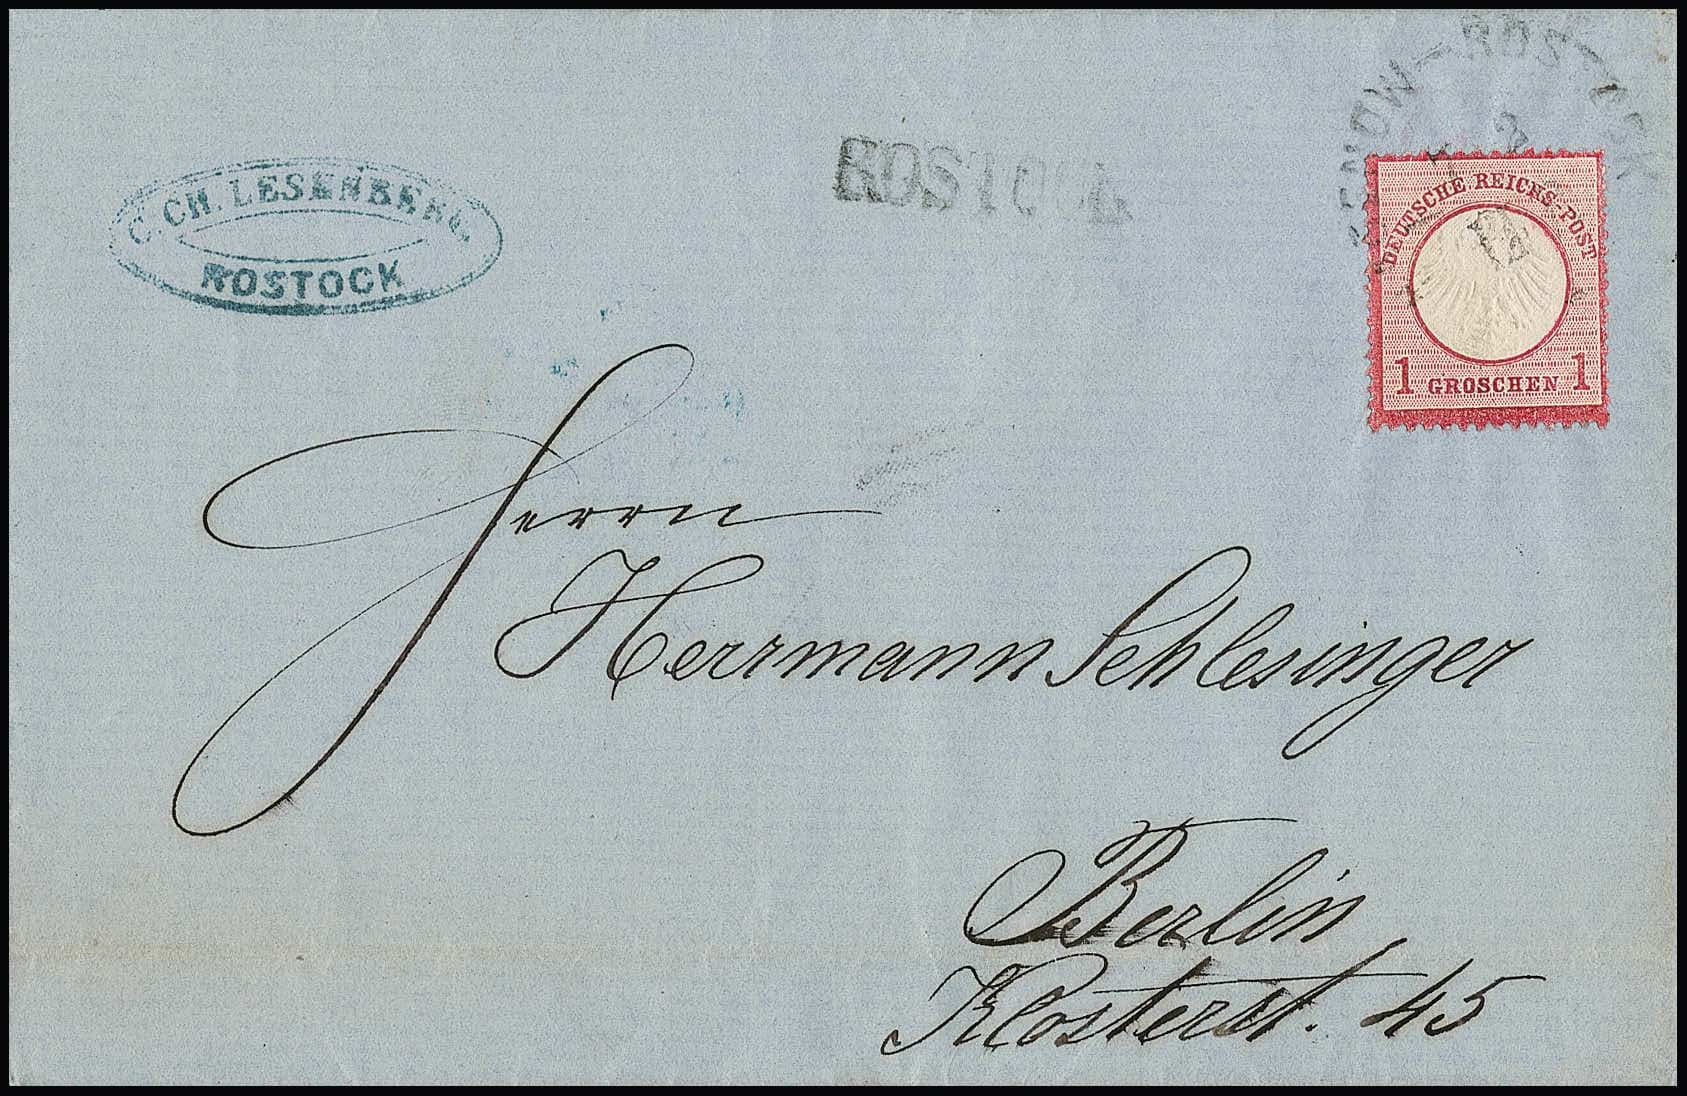 C. CH. LESENBERG.
ROSTOCK
ROSTOCK
DEUTSCHE REICHS-POST
1 GROSCHEN 1
Herrn
Herrmann Schlesinger
Berlin,
Klosterst. 45